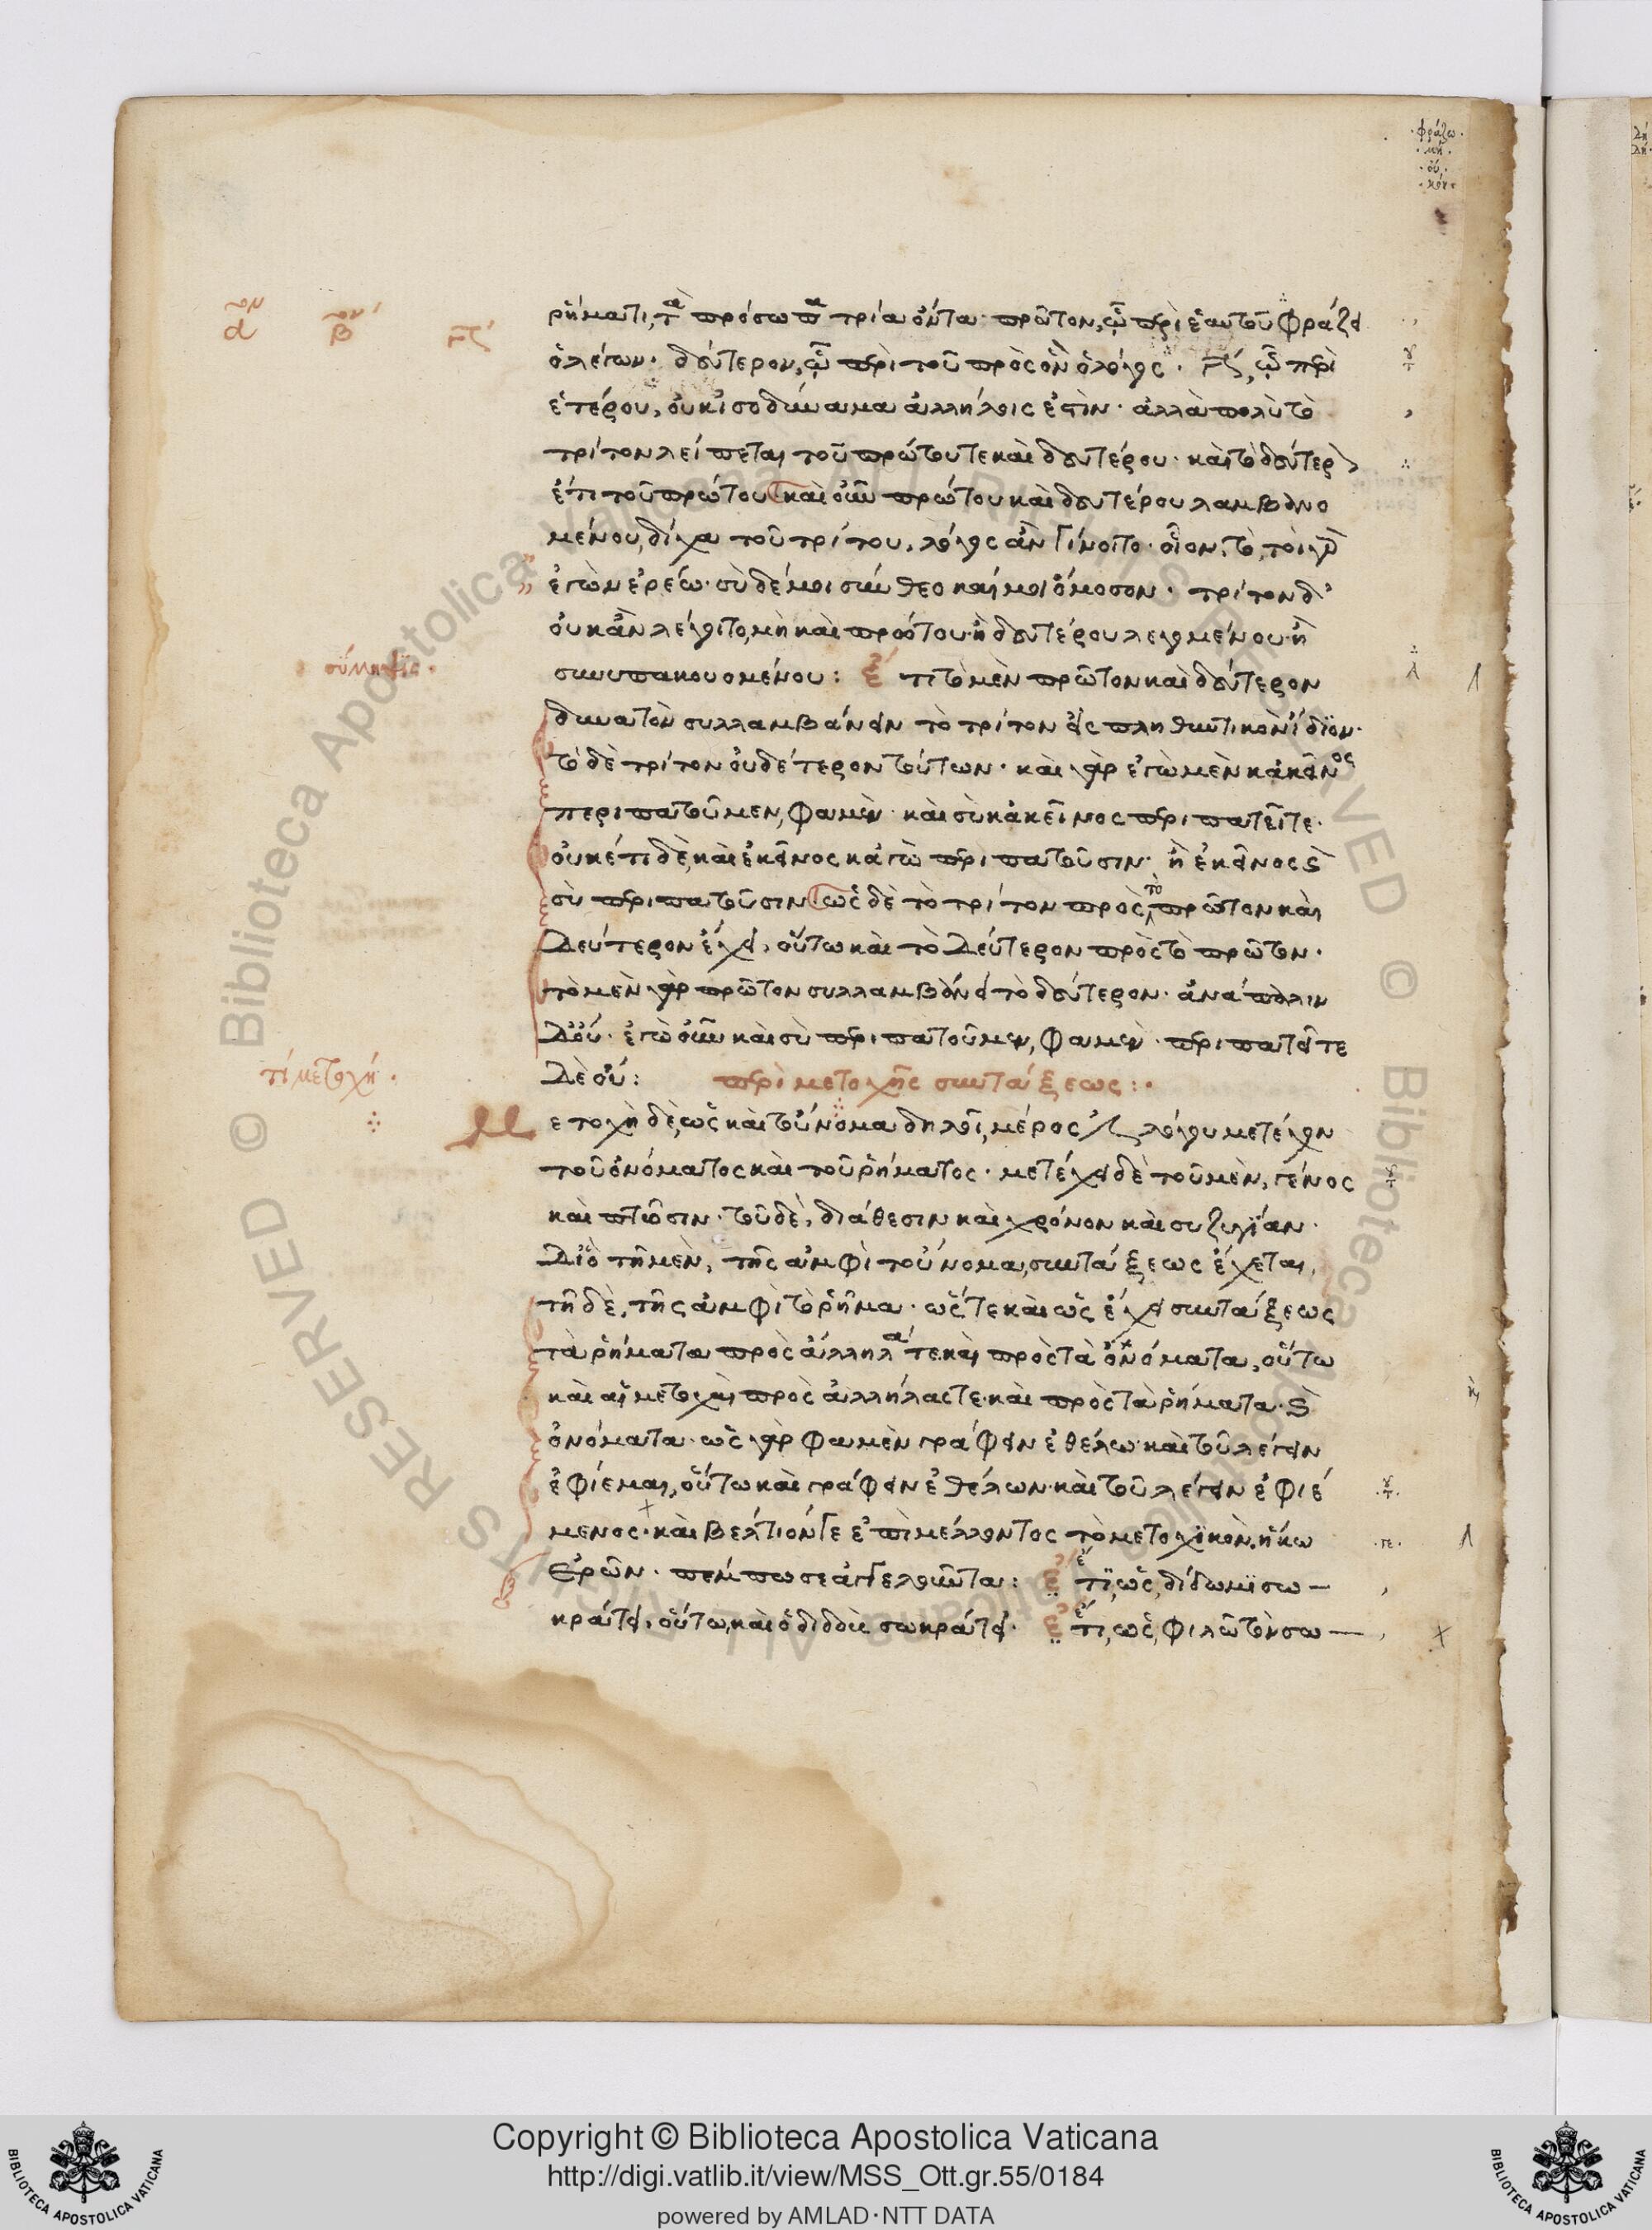 ·φράζω·
·μή·
·οὐ·
ῥήματι, τὰ πρόσωπα τρία ὄντα· πρῶτον, ᾧ περὶ ἑαυτοῦ φράζει
ὁ λέγων· δεύτερον, ᾧ περὶ τοῦ πρὸς ὃν ὁ λόγος· ᾧ περὶ
ἑτέρου, οὐκ ἰσοδύναμα ἀλλήλοις ἐστίν· ἀλλὰ πολὺ τὸ
τρίτον λείπεται τοῦ πρώτου τε καὶ δευτέρου· καὶ τὸ δεύτερον
ἔτι τοῦ πρώτου καὶ οὖν πρώτου καὶ δευτέρου λαμβανο
μένου, δίχα τοῦ τρίτου, λόγος ἂν γίνοιτο· οἷον, τὸ, τοὶ γὰρ
ἐγὼν ἐρέω· σὺ δέ μοι σύνθεο καί μοι ὄμοσον· τρίτον δ'
οὐκ ἂν λέγοιτο, μὴ καὶ πρώτου ἢ δευτέρου λεγομένου ἢ
συνυπακουομένου: ἔτι τὸ μὲν πρῶτον καὶ δεύτερον
σύλληψις·
δυνατὸν συλλαμβάνειν τὸ τρίτον εἰς πληθυντικὸν ἴδιον·
τὸ δὲ τρίτον οὐδέτερον τούτων· καὶ γὰρ ἐγὼ μὲν κἀκεῖνος
περιπατοῦμεν, φαμέν· καὶ σὺ κἀκεῖνος περιπατεῖτε·
οὐκέτι δὲ, καὶ ἐκεῖνος κἀγὼ περιπατοῦσιν· ἢ ἐκεῖνος καὶ
σὺ περιπατοῦσιν ὡς δὲ τὸ τρίτον πρὸς τὸ πρῶτον καὶ
δεύτερον ἔχει, οὕτω καὶ τὸ δεύτερον πρὸς τὸ πρῶτον·
τὸ μὲν γὰρ πρῶτον συλλαμβάνει τὸ δεύτερον· ἀνάπαλιν
δ' οὔ· ἐγὼ οὖν καὶ σὺ περιπατοῦμεν, φαμέν· περιπατεῖτε
δὲ οὔ: περὶ μετοχῆς συντάξεως:·
τί μετοχή·
Μετοχὴ δὲ, ὡς καὶ τοὔνομα δηλοῖ, μέρος λόγου μετέχον
τοῦ ὀνόματος καὶ τοῦ ῥήματος· μετέχει δὲ τοῦ μὲν, γένος
καὶ πτῶσιν· τοῦ δὲ, διάθεσιν καὶ χρόνον καὶ συζυγίαν·
Διὸ τῇ μὲν, τῆς ἀμφὶ τοὔνομα, συντάξεως ἔχεται,
τῇ δὲ, τῆς ἀμφὶ τὸ ῥῆμα· ὥστε καὶ ὡς ἔχει συντάξεως
τὰ ῥήματα πρὸς ἄλληλά τε καὶ πρὸς τὰ ὀνόματα, οὕτω
καὶ αἱ μετοχαὶ πρὸς ἀλλήλας τε καὶ πρὸς τὰ ῥήματα καὶ
ὀνόματα· ὡς γὰρ φαμὲν γράφειν ἐθέλω καὶ τοῦ λέγειν
ἐφίεμαι, οὕτω καὶ γράφειν ἐθέλων καὶ τοῦ λέγειν ἐφιέ
μενος· καὶ βέλτιόν γε ἐπὶ μέλλοντος τὸ μετοχικὸν, ἥκω
ἐρῶν· πέμπω σε ἀγγελοῦντα: ἔτι, ὡς, δίδωμι σω–
κράτει, οὕτω, καὶ ὁ διδοὺς σωκράτει· ἔτι, ὡς, φιλῶ τὸν σω—
© Biblioteca Apostolica Vaticana ALL RIGHTS RESERVED
Copyright © Biblioteca Apostolica Vaticana
http://digi.vatlib.it/view/MSS_Ott.gr.55/0184
powered by AMLAD·NTT DATA
BIBLIOTECA APOSTOLICA VATICANA
BIBLIOTECA APOSTOLICA VATICANA